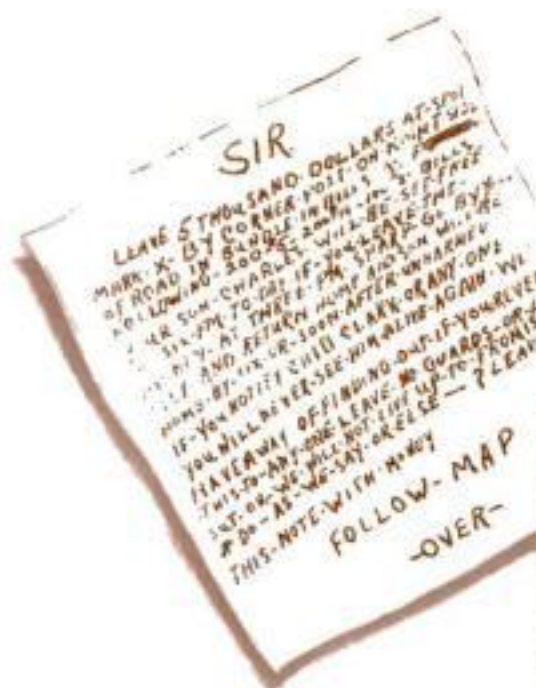 SIR
LEAVE 5 THOUSAND DOLLARS AT-SPOT
MARK-X-BY CORNER POST-ON RIGHT SIDE
OF ROAD IN BUNDLE IN BILLS
FOLLOWING-200 20's-
SON-CHARLES WILL-BE SET-FREE
IF-YOU LEAVE THE
AT THREE-P.M SHARP GO BY
AND RETURN HOME AND SON WILL BE
HOME-BY-SIX-OR-SOON-AFTER-UNHARMED
IF-YOU NOTIFY CLARK-OR ANY-ONE
YOU WILL NEVER-SEE-HIM ALIVE-AGAIN-WE
HAVE A WAY OF FINDING OUT-IF-YOU REVEAL
THIS-TO-ANY-ONE LEAVE NO GUARDS-OR-A
SET-OR-WE-WILL-NOT-LIVE UP-TO-PROMISE
DO-AS-WE-SAY-OR ELSE — LEAVE
THIS-NOTE-WITH MONEY
FOLLOW-MAP
-OVER-